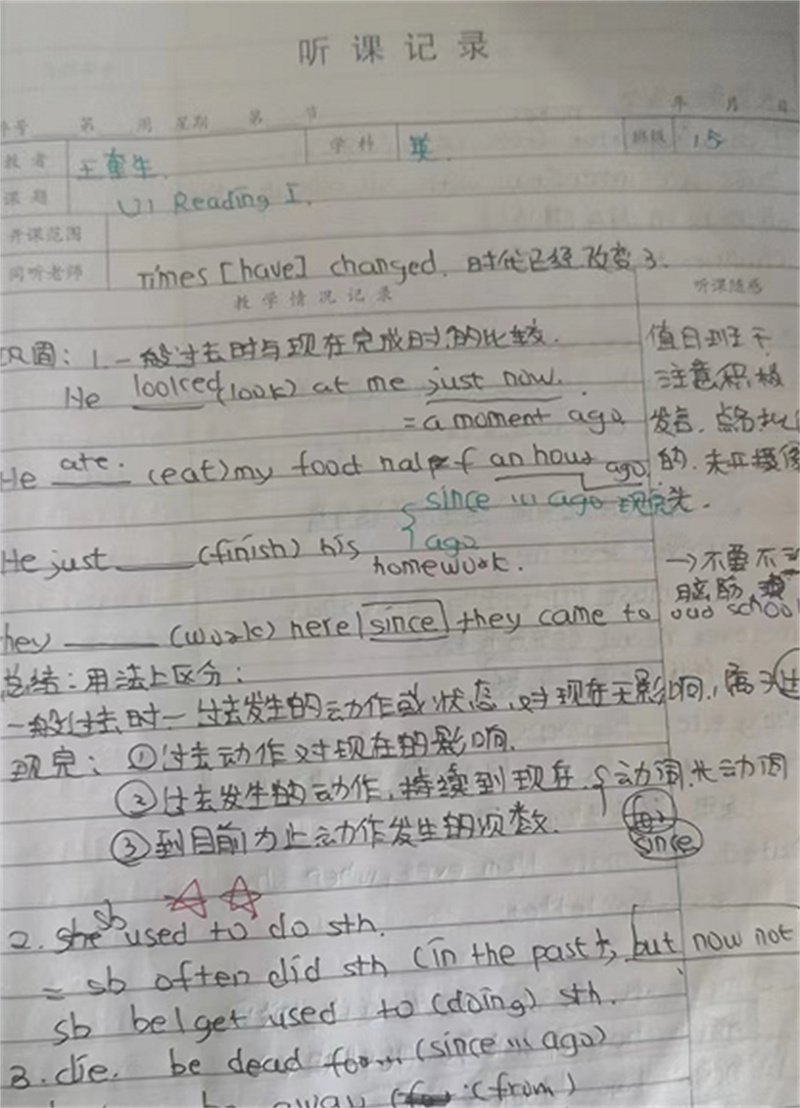 听课记录
年 月 日
第 周 星期 第 节
学科 英 班级 15
课题 U1 Reading I.
开课范围
同听老师 Times [have] changed. 时代已经改变了.
教学情况记录 听课随感
巩固: 1. 一般过去时与现在完成时的比较. 值日班干
He looked (look) at me just now. 注意积极
= a moment ago 发言. 点名批
He ate. (eat) my food half an hour ago 的. 未开摄像
since ... ago 现完 头.
ago
He just _____ (finish) his homework. → 不要不动
脑筋
They _____ (work) here since they came to our school
总结: 用法上区分:
一般过去时 — 过去发生的动作或状态, 对现在无影响,
现完: ① 过去动作对现在的影响.
② 过去发生的动作, 持续到现在. { 动词. 长动词
for
③ 到目前为止动作发生的次数. since
2. she sb used to do sth.
= sb often did sth (in the past, but now not
sb be/get used to (doing) sth.
3. die. be dead for... (since ... ago)
be away (from)